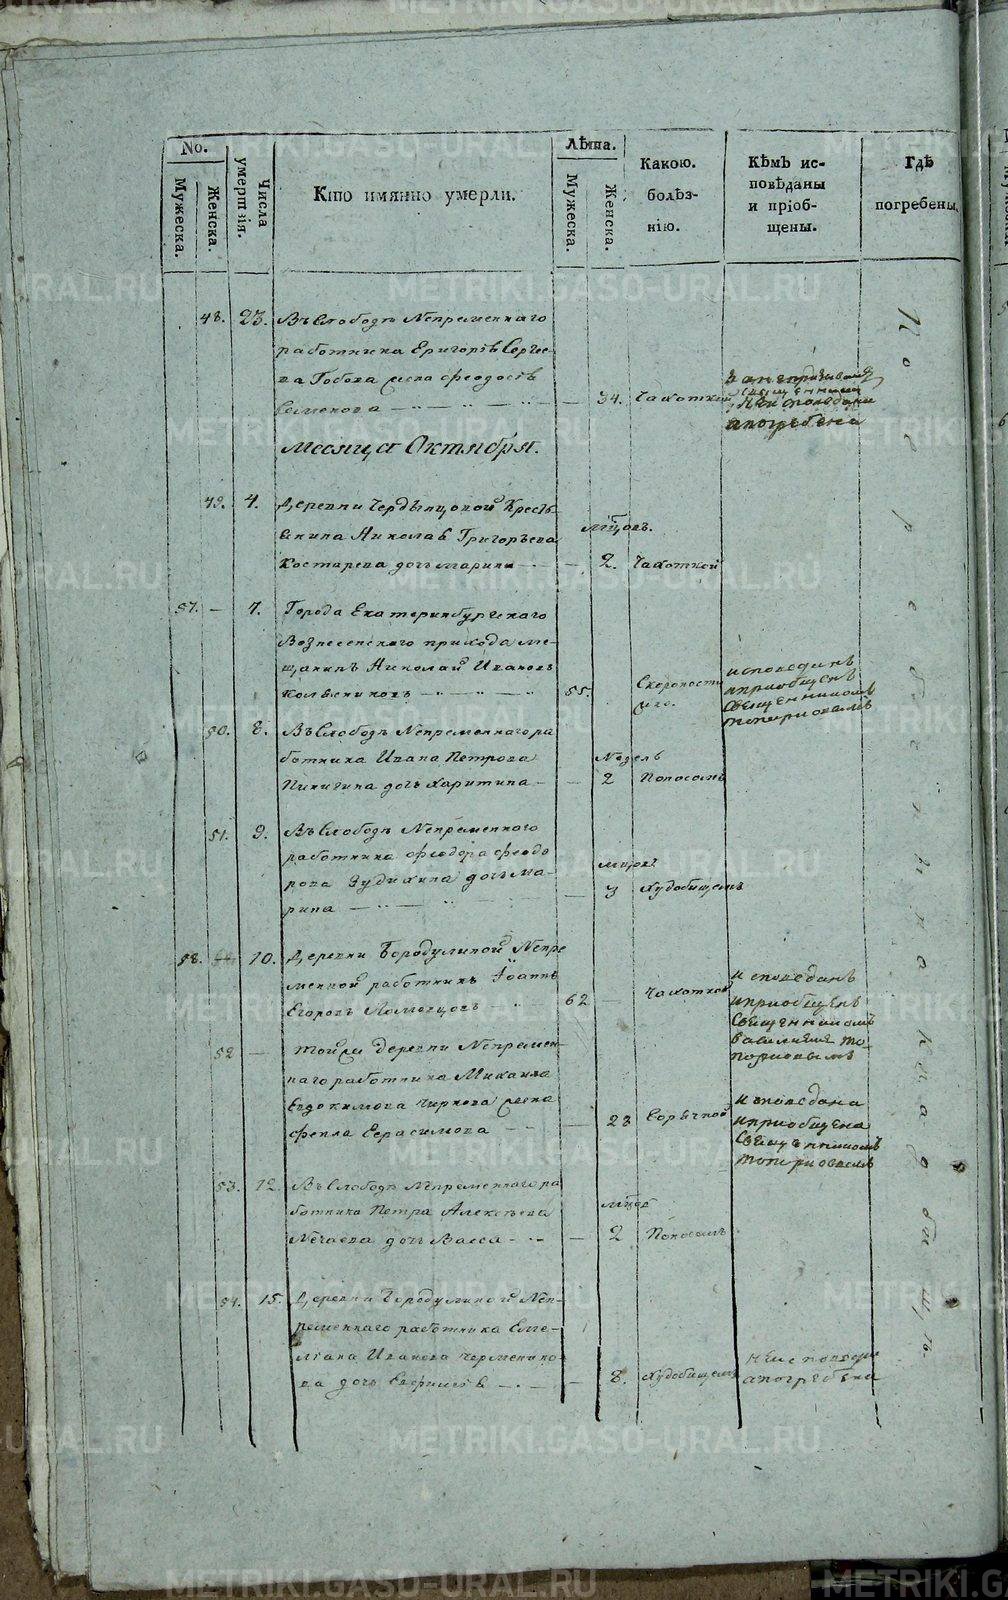 No.
Мужеска.
Женска.
Числа умершія.
Кто имянно умерли.
Лѣта.
Мужеска.
Женска.
Какою.
болѣз-
нію.
Кѣмъ ис-
повѣданы
и пріоб-
щены.
Гдѣ
погребены.
48. 23. Въ Слободѣ Непременнаго
работника Григорія Сергѣе-
ва жена Феодосія
Семенова 34. Чахоткой
погребена
месяца Октября.
49. 4. Деревни Крестья-
нина Николая Григорьева мѣсяцовъ.
Костарева дочь Марина 2. Чахоткой
57. 7. Города Екатеринбургскаго
Вознесенскаго прихода ме-
щанинъ Николай Ивановъ
Колесниковъ 55. Скоропости
исповеданъ
и приобщенъ
Священникомъ
Топорковымъ
50. 8. Въ Слободѣ Непременнаго ра
ботника Ивана Петрова Недель
Пинигина дочь Харитина 2 Поносомъ
51. 9. Въ Слободѣ Непременного
работника Феодора Феодо
рова Зудихина дочь Ма-
рина 3 Худобищемъ
58. 10. Деревни Бородулиной Непре
менной работникъ Іоаннъ
Егоровъ 62 Чахоткой
исповеданъ
и приобщенъ
Священникомъ
Василиемъ То-
порковымъ
52 Той же деревни Непремен-
наго работника Михаила
Евдокимова Чиркова жена
Фекла Герасимова 28 Горячкой
исповедана
и приобщена
Священникомъ
Топорковымъ
53. 12. Въ Слободѣ Непременнаго ра
ботника Петра Алексѣева
Нечаева дочь Васса 2 Поносомъ
54. 15. Деревни Бородулиной Неп-
ременнаго работника Еме-
ліана Иванова Черменино-
ва дочь 8. Худобищемъ
а погребена
На кладбищѣ.
METRIKI.GASO-URAL.RU